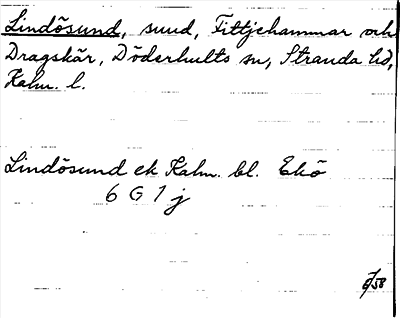 Lindösund, sund, Tittjehammar och
Dragskär, Döderhults sn, Stranda hd,
Kalm. l.
Lindösund ek Kalm. bl. Ekö
6 G 1 j